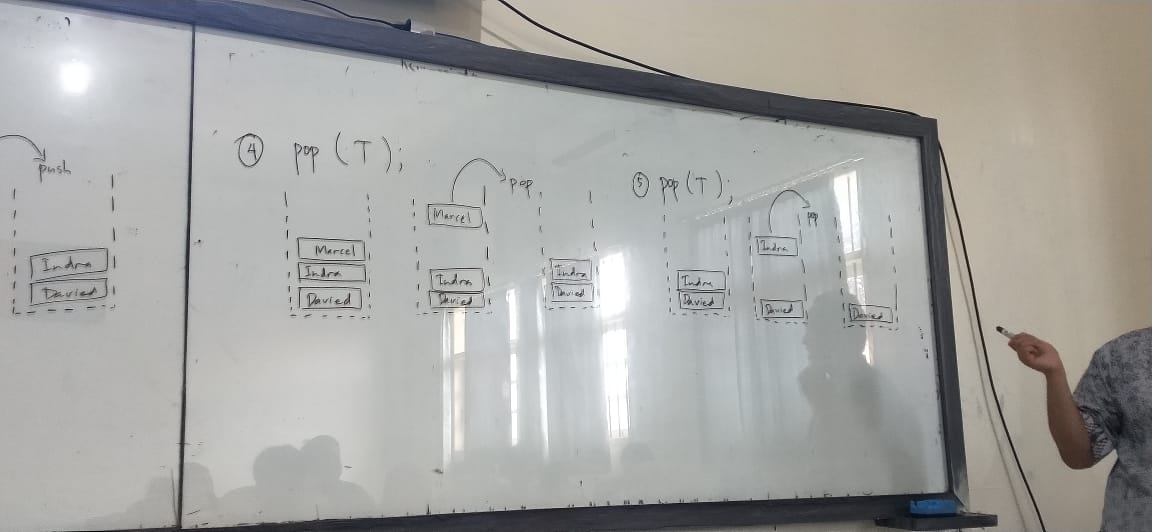 push
Indra
Davied
④ pop (T);
Marcel
Indra
Davied
pop
Marcel
Indra
Davied
Indra
Davied
⑤ pop (T);
Indra
Davied
pop
Indra
Davied
Davied